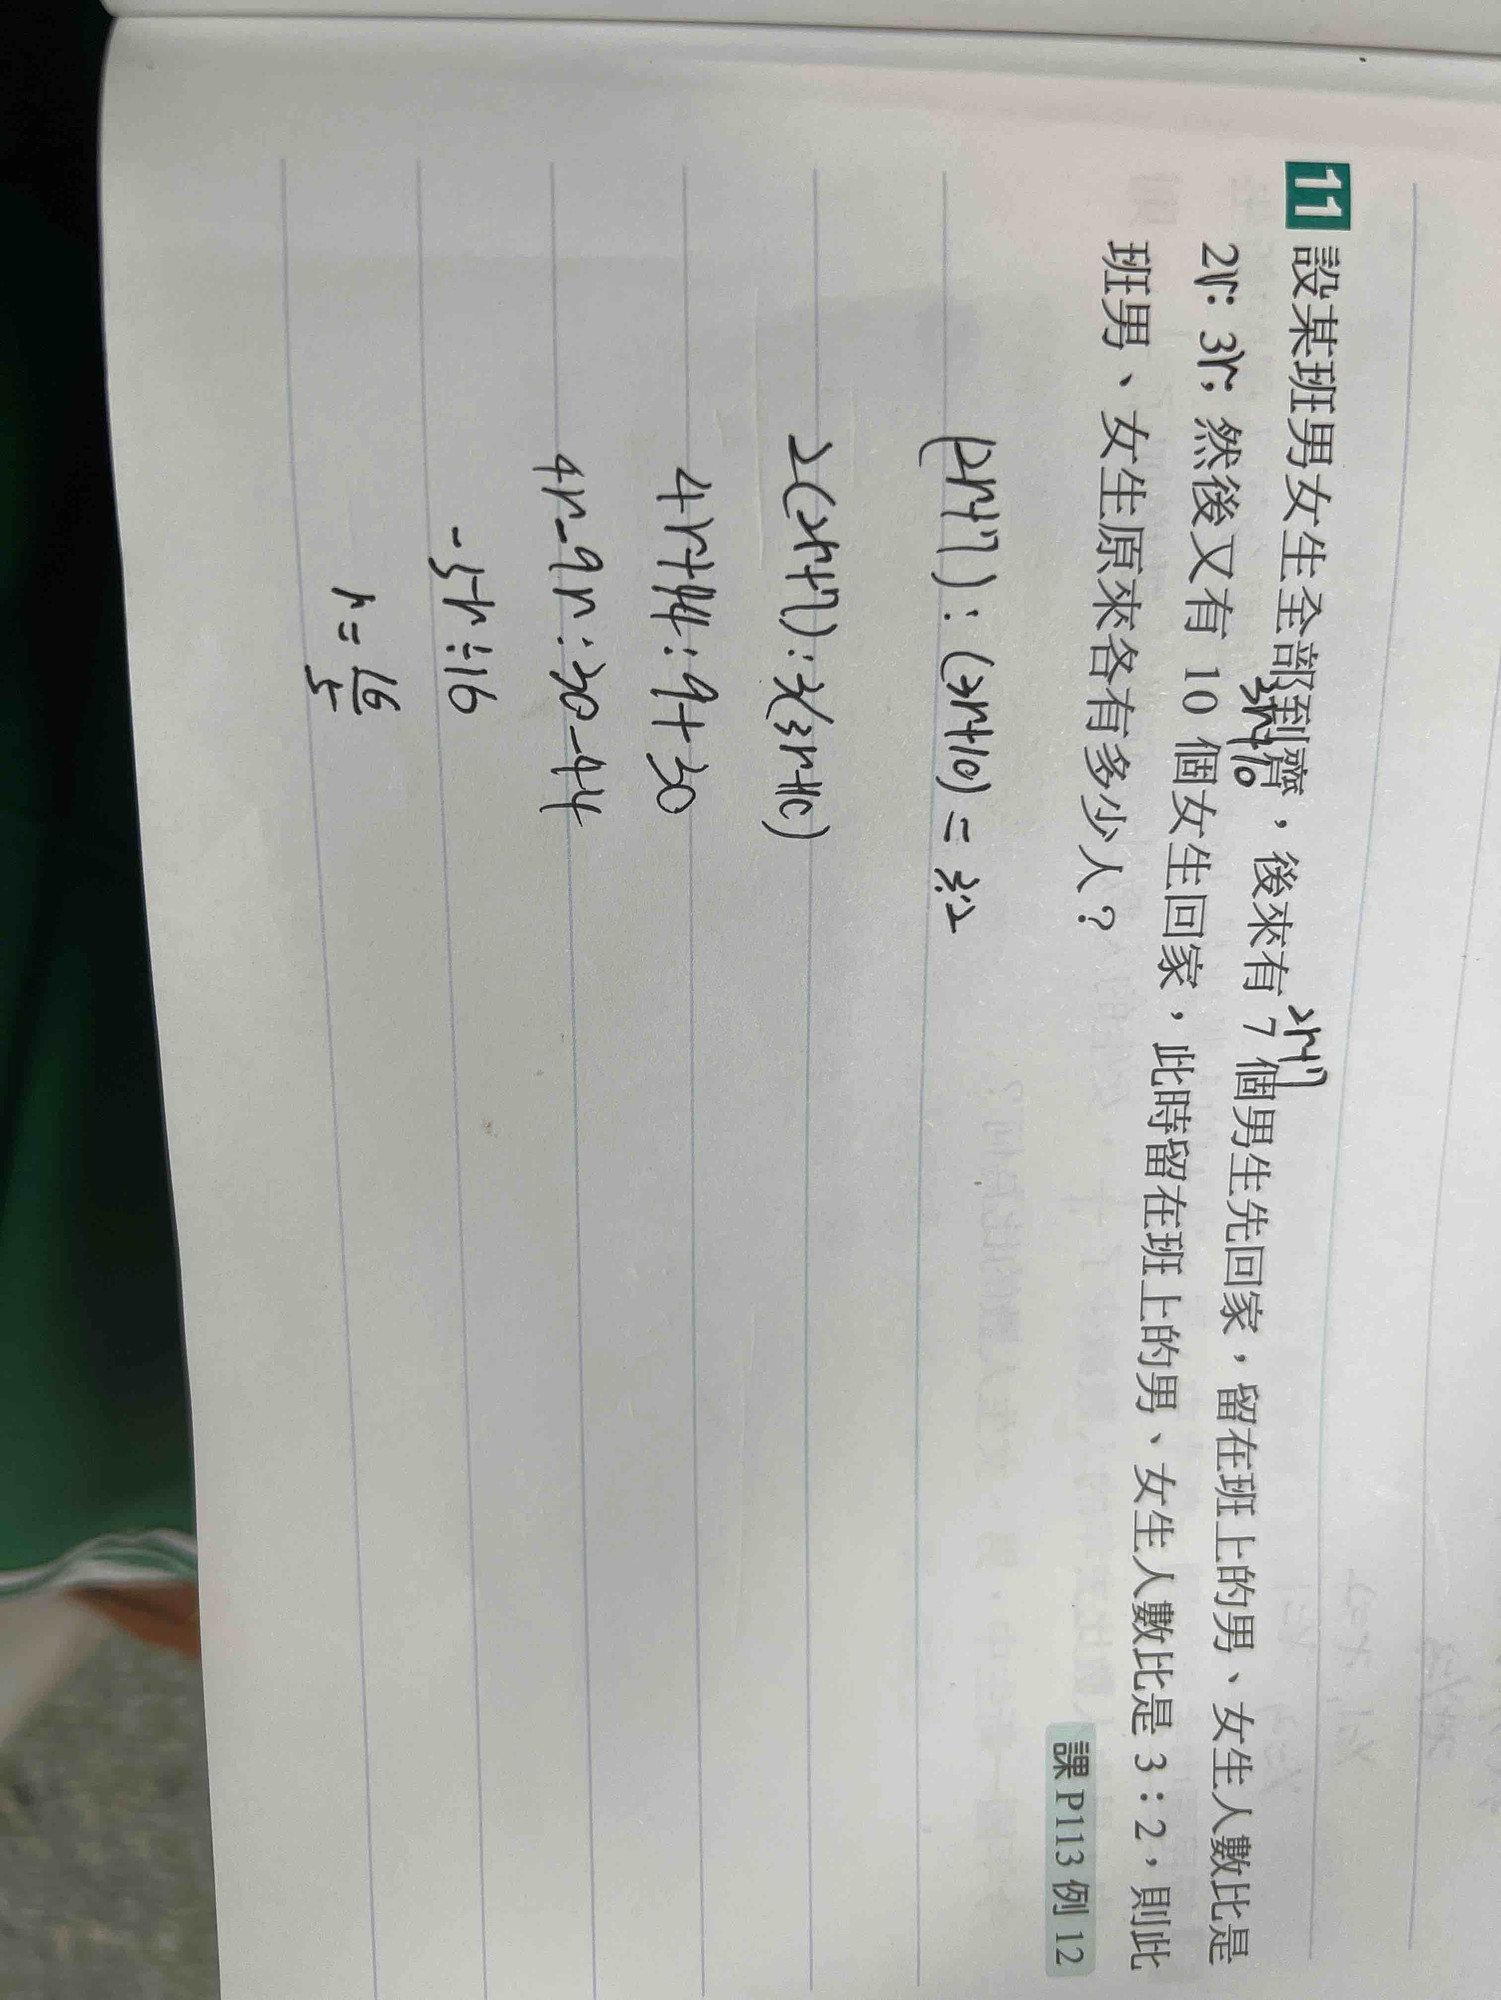 11 設某班男女生全部到齊，後來有 7 個男生先回家，留在班上的男、女生人數比是
2r：3r，然後又有 10 個女生回家，此時留在班上的男、女生人數比是 3：2，則此
班男、女生原來各有多少人？
課 P113 例 12
2r+7
3r+10
(2r+7):(3r+10)=3:2
2(2r+7):3(3r+10)
4r+14:9+30
4r-9r:30-44
-5r=16
r=16/5